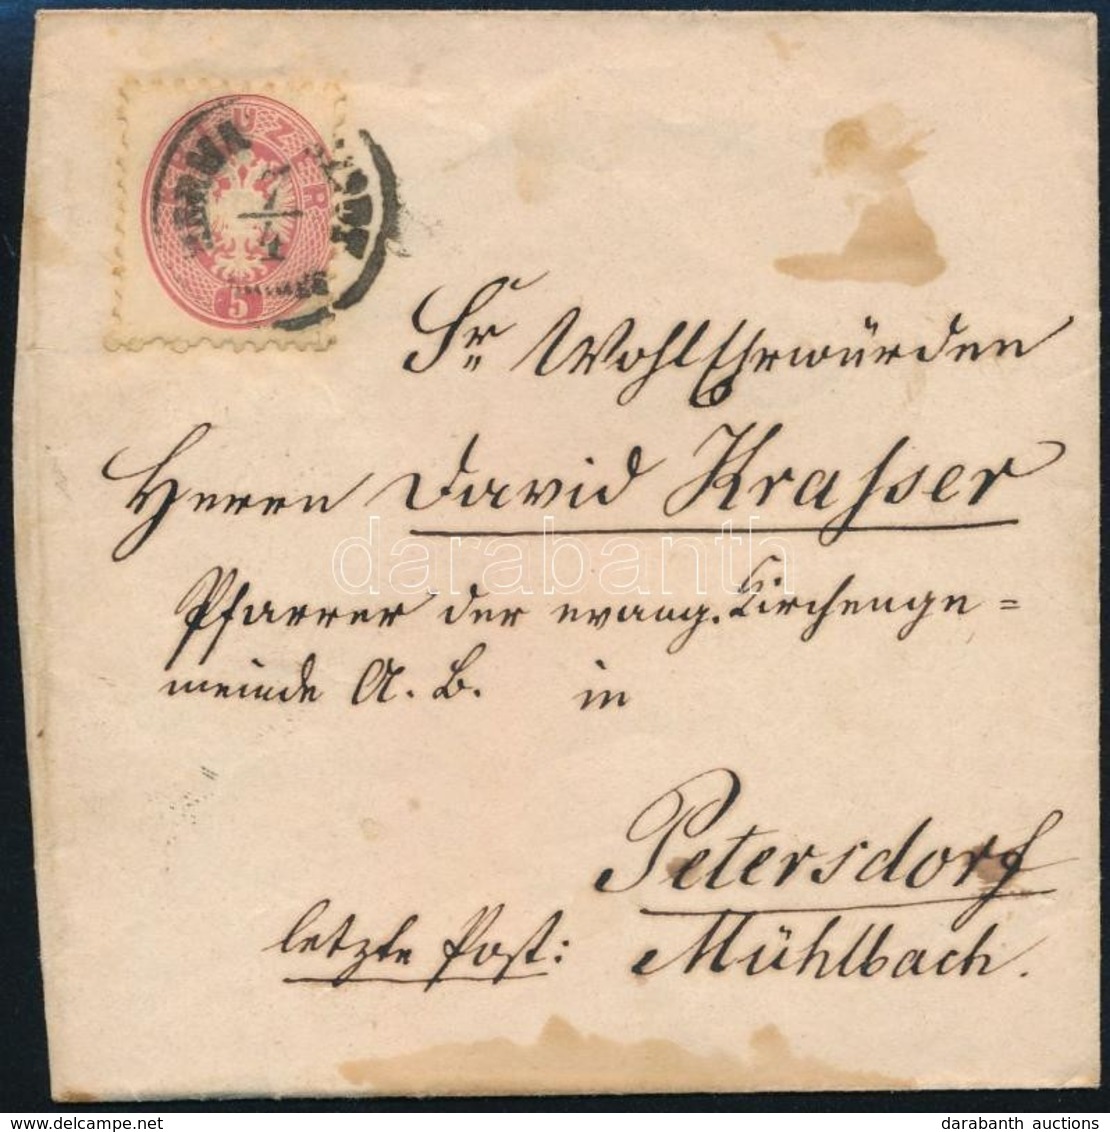 KREUZER
5
1/4
Sr WohlEhrwürden
Herrn David Krasser
Pfarrer der evang. Kirchenge=
meinde A. B. in
Petersdorf
letzte Post: Mühlbach.
darabanth
delcampe.net
darabanth auctions